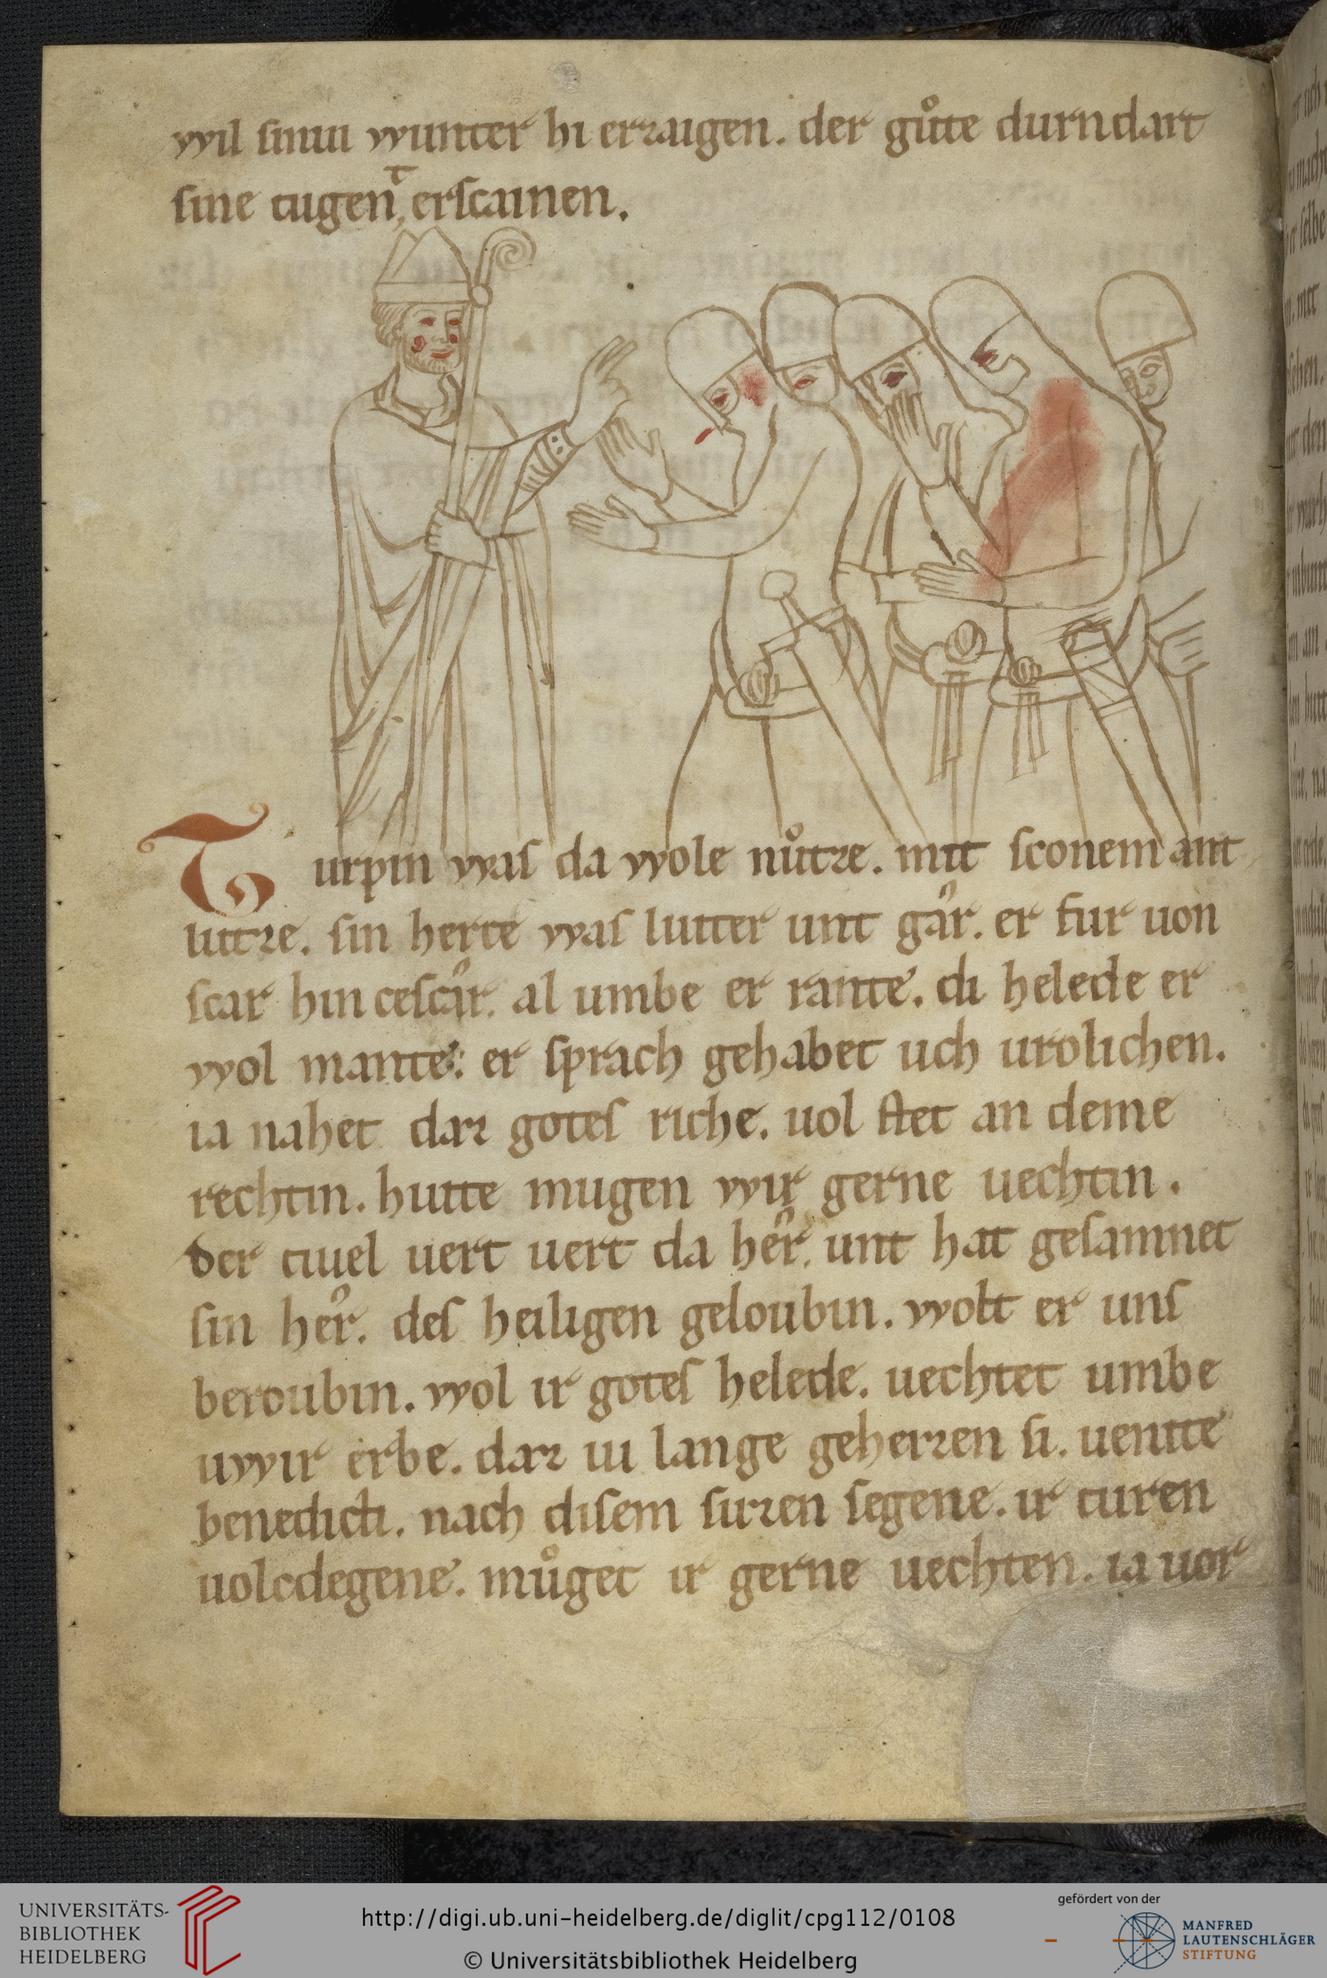 wil siniu wunter hi erzaigen. der gůte durndart
sine tugenͭ erscainen.
Turpin was da wole nůtze. mit sconem ant
lutze. sin herce was lutter unt gar. er fur uon
scar hin cescar. al umbe er rante. di helede er
wol mante: er sprach gehabet uch urolichen.
ia nahet daz gotes riche. uol stet an deme
rechtin. hutte mugen wir gerne uechtin.
der tiuel uert uert da her. unt hat gesamnet
sin her. des heiligen geloubin. wolt er uns
beroubin. wol ir gotes helede. uechtet umbe
uwir erbe. daz iu lange geherzen si. uenite
benedicti. nach disem suzen segene. ir turen
uolcdegene. můget ir gerne uechten. ia uor
UNIVERSITÄTS-
BIBLIOTHEK
HEIDELBERG
http://digi.ub.uni-heidelberg.de/diglit/cpg112/0108
© Universitätsbibliothek Heidelberg
gefördert von der
MANFRED
LAUTENSCHLÄGER
STIFTUNG